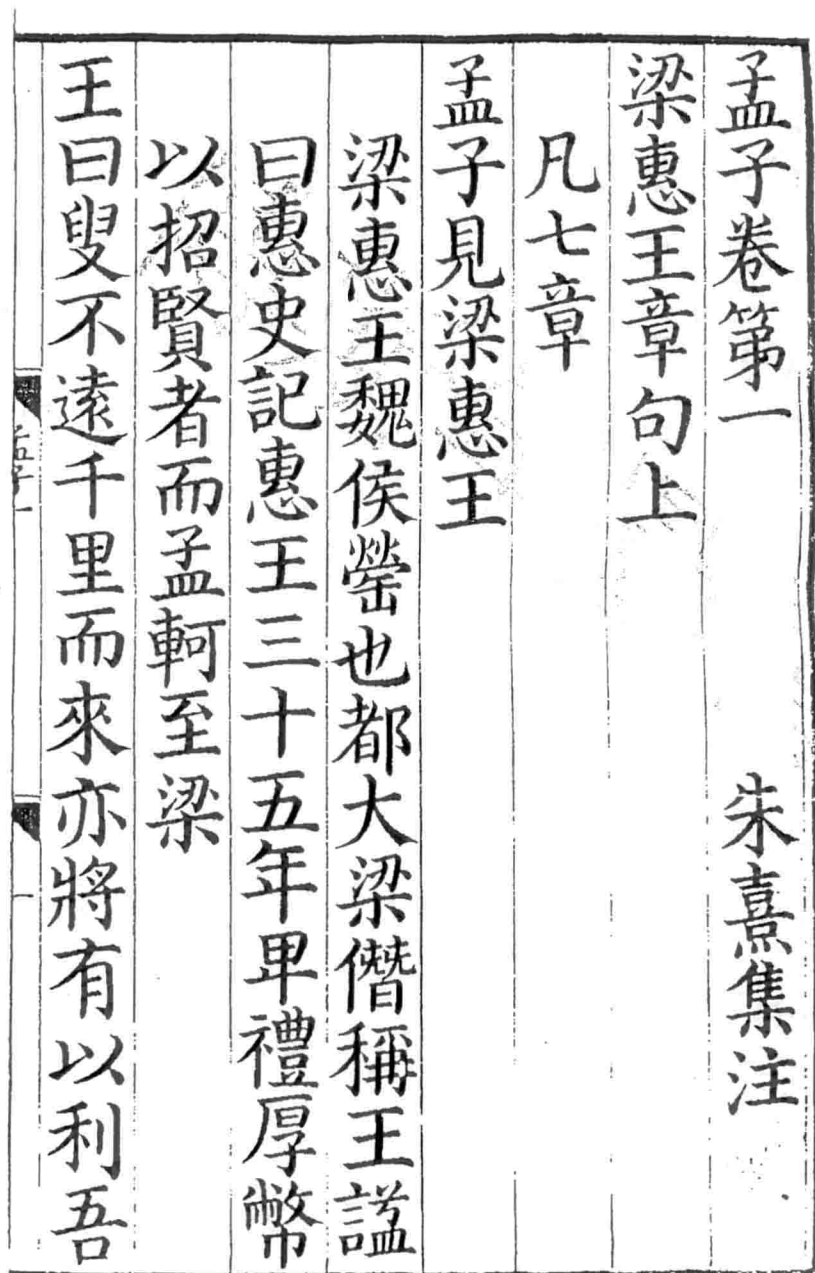 孟子卷第一　朱熹集注
梁惠王章句上
凡七章
孟子見梁惠王
梁惠王魏侯罃也都大梁僭稱王謚
曰惠史記惠王三十五年卑禮厚幣
以招賢者而孟軻至梁
王曰叟不遠千里而來亦將有以利吾
孟子一
一